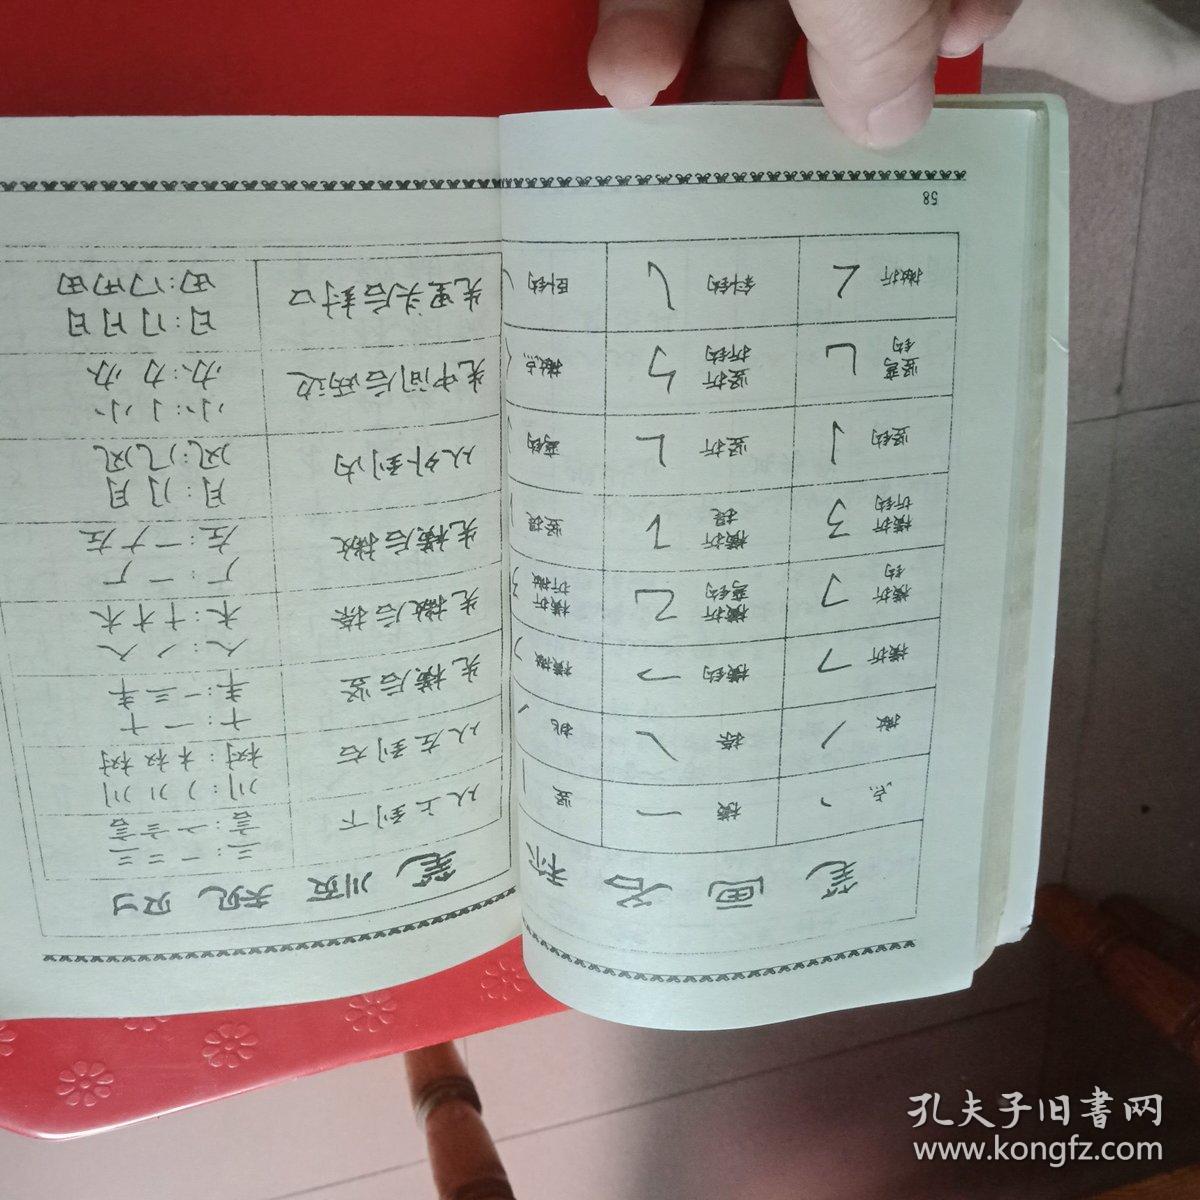 笔画名称
点 丶 横 一 竖 丨
撇 丿 捺 ㇏ 挑 ㇀
横折 ㇕ 横钩 ㇖ 横撇 ㇇
横折钩 ㇆ 横折弯钩 ㇈ 横折折撇 ㇋
横折折钩 ㇌ 横折提 ㇊ 竖提
竖钩 亅 竖折 ㇗ 弯钩
竖弯钩 ㇟ 竖折折钩 ㇉ 撇点
撇折 ㇜ 斜钩 ㇂ 卧钩
58
笔顺规则
从上到下 三：一二三
言：亠 言 言
从左到右 川：丿 川 川
树：木 权 树
先横后竖 十：一十
丰：一三丰
先撇后捺 人：丿人
木：十才木
先横后撇 厂：一厂
左：一ナ左
从外到内 月：⺆月
风：几风
先中间后两边 小：亅小
办：力办
先里头后封口 日：冂月日
田：冂用田
孔夫子旧書网
www.kongfz.com